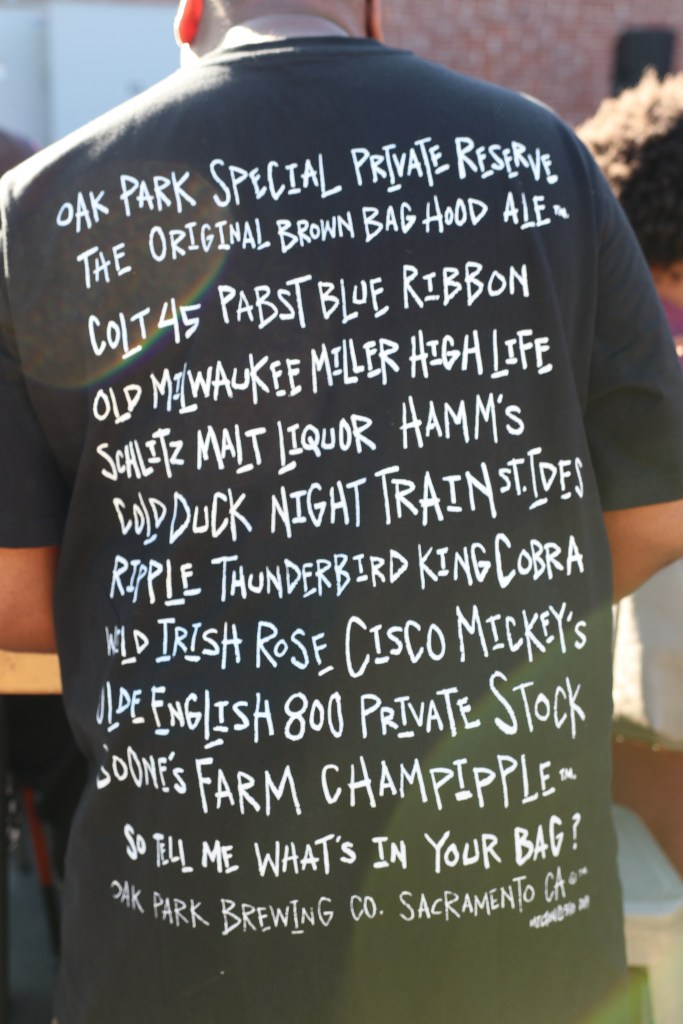 OAK PARK SPECIAL PRIVATE RESERVE
THE ORIGINAL BROWN BAG HOOD ALE™
COLT 45 PABST BLUE RIBBON
OLD MILWAUKEE MILLER HIGH LIFE
SCHLITZ MALT LIQUOR HAMM'S
COLD DUCK NIGHT TRAIN ST. IDES
RIPPLE THUNDERBIRD KING COBRA
WILD IRISH ROSE CISCO MICKEY'S
OLDE ENGLISH 800 PRIVATE STOCK
BOONE'S FARM CHAMPIPPLE™
SO TELL ME WHAT'S IN YOUR BAG?
OAK PARK BREWING CO. SACRAMENTO CA